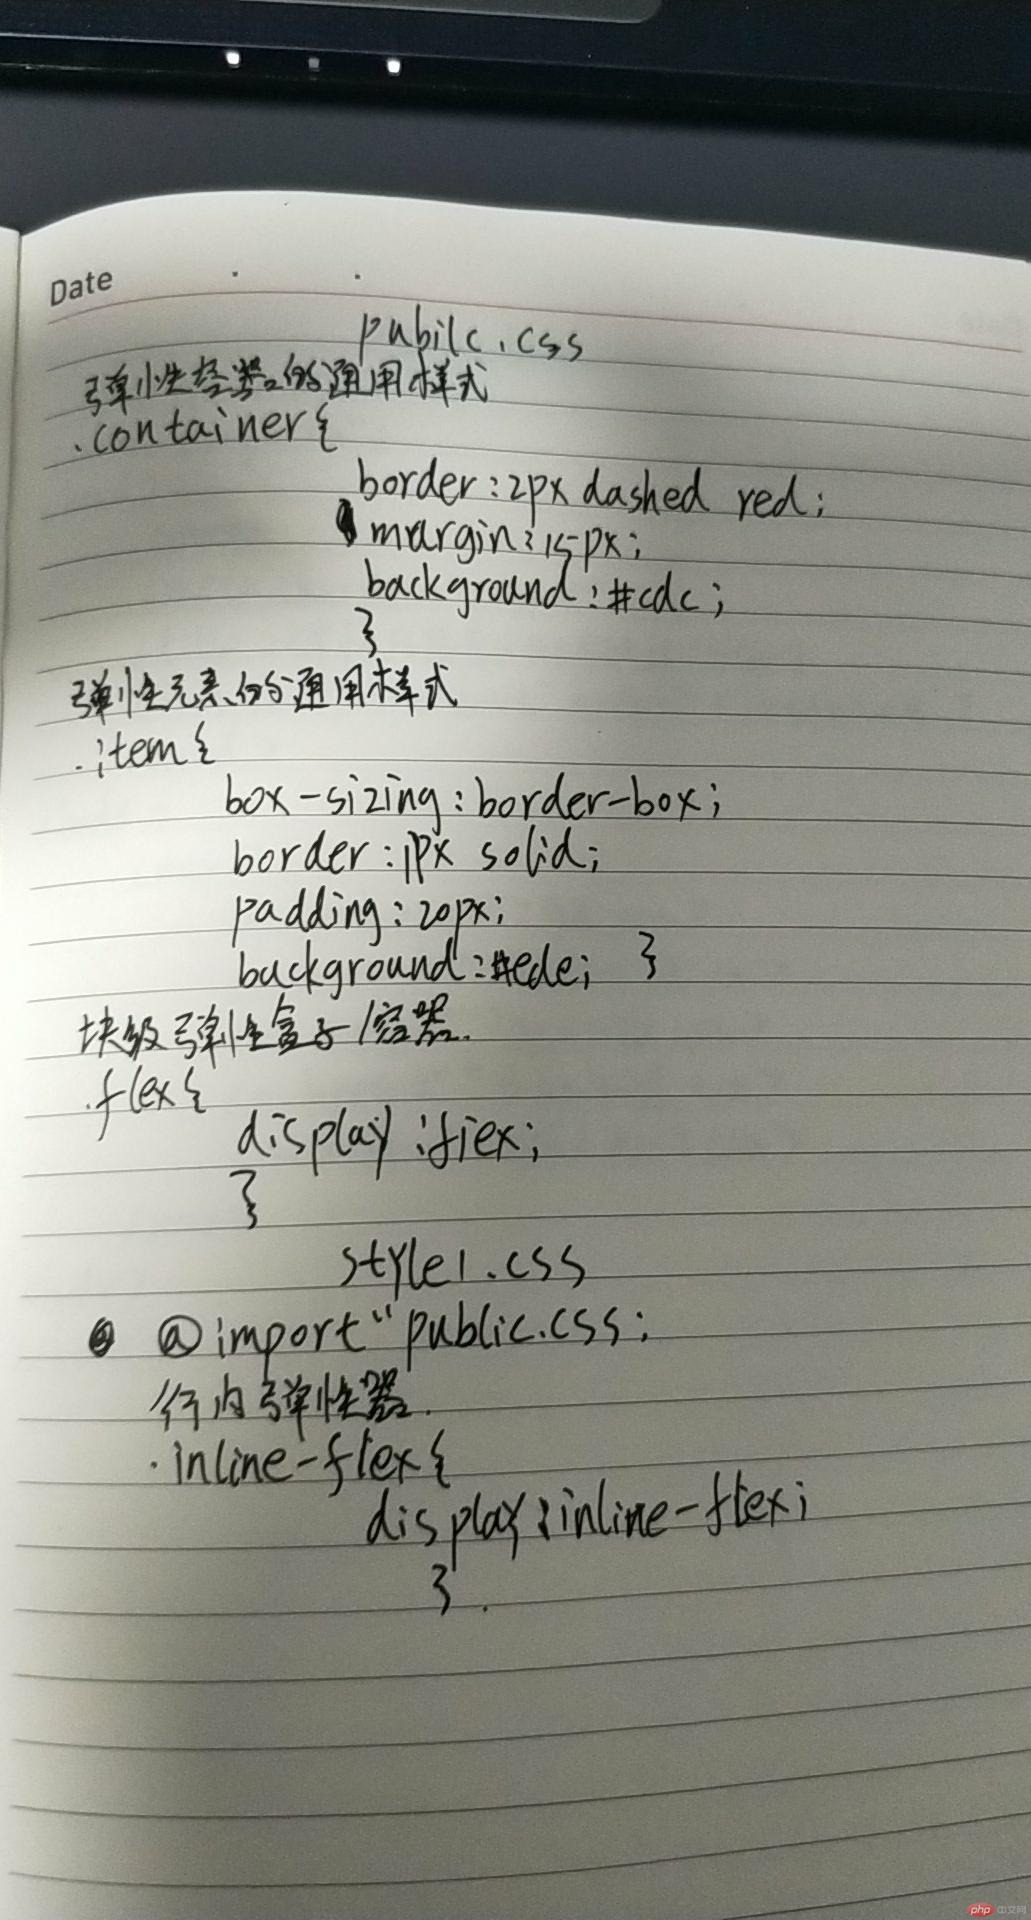 Date
pubilc.css
弹性容器的通用样式
.container{
border:2px dashed red;
margin:15px;
background:#cdc;
}
弹性元素的通用样式
.item{
box-sizing:border-box;
border:1px solid;
padding:20px;
background:#ede; }
块级弹性盒子/容器.
.flex{
display:fiex;
}
style1.css
@import "public.css;
行内弹性器.
.inline-flex{
display:inline-flex;
}.
php 中文网